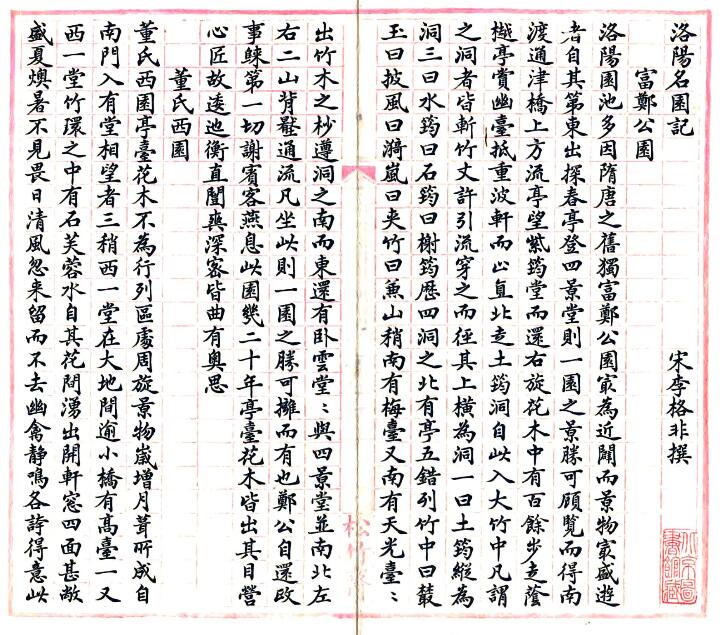 洛陽名園記 宋李格非撰
富鄭公園
洛陽園池多因隋唐之舊獨富鄭公園㝡為近闢而景物㝡盛遊
者自其第東出探春亭登四景堂則一園之景勝可顧覽而得南
渡通津橋上方流亭望紫筠堂而還右旋花木中有百餘步走蔭
樾亭賞幽臺抵重波軒而止直北走土筠洞自此入大竹中凡謂
之洞者皆斬竹丈許引流穿之而徑其上橫為洞一曰土筠縱為
洞三曰水筠曰石筠曰榭筠歷四洞之北有亭五錯列竹中曰叢
玉曰披風曰漪嵐曰夾竹曰兼山稍南有梅臺又南有天光臺〻
松竹
出竹木之杪遵洞之南而東還有卧雲堂〻與四景堂並南北左
右二山背壓通流凡坐此則一園之勝可擁而有也鄭公自還政
事歸第一切謝賓客燕息此園幾二十年亭臺花木皆出其目營
心匠故逶迤衡直闓爽深密皆曲有奧思
董氏西園
董氏西園亭臺花木不為行列區處周旋景物歲增月葺所成自
南門入有堂相望者三稍西一堂在大地間逾小橋有高臺一又
西一堂竹環之中有石芙蓉水自其花間湧出開軒窓四面甚敞
盛夏燠暑不見畏日清風忽来留而不去幽禽静鳴各誇得意此